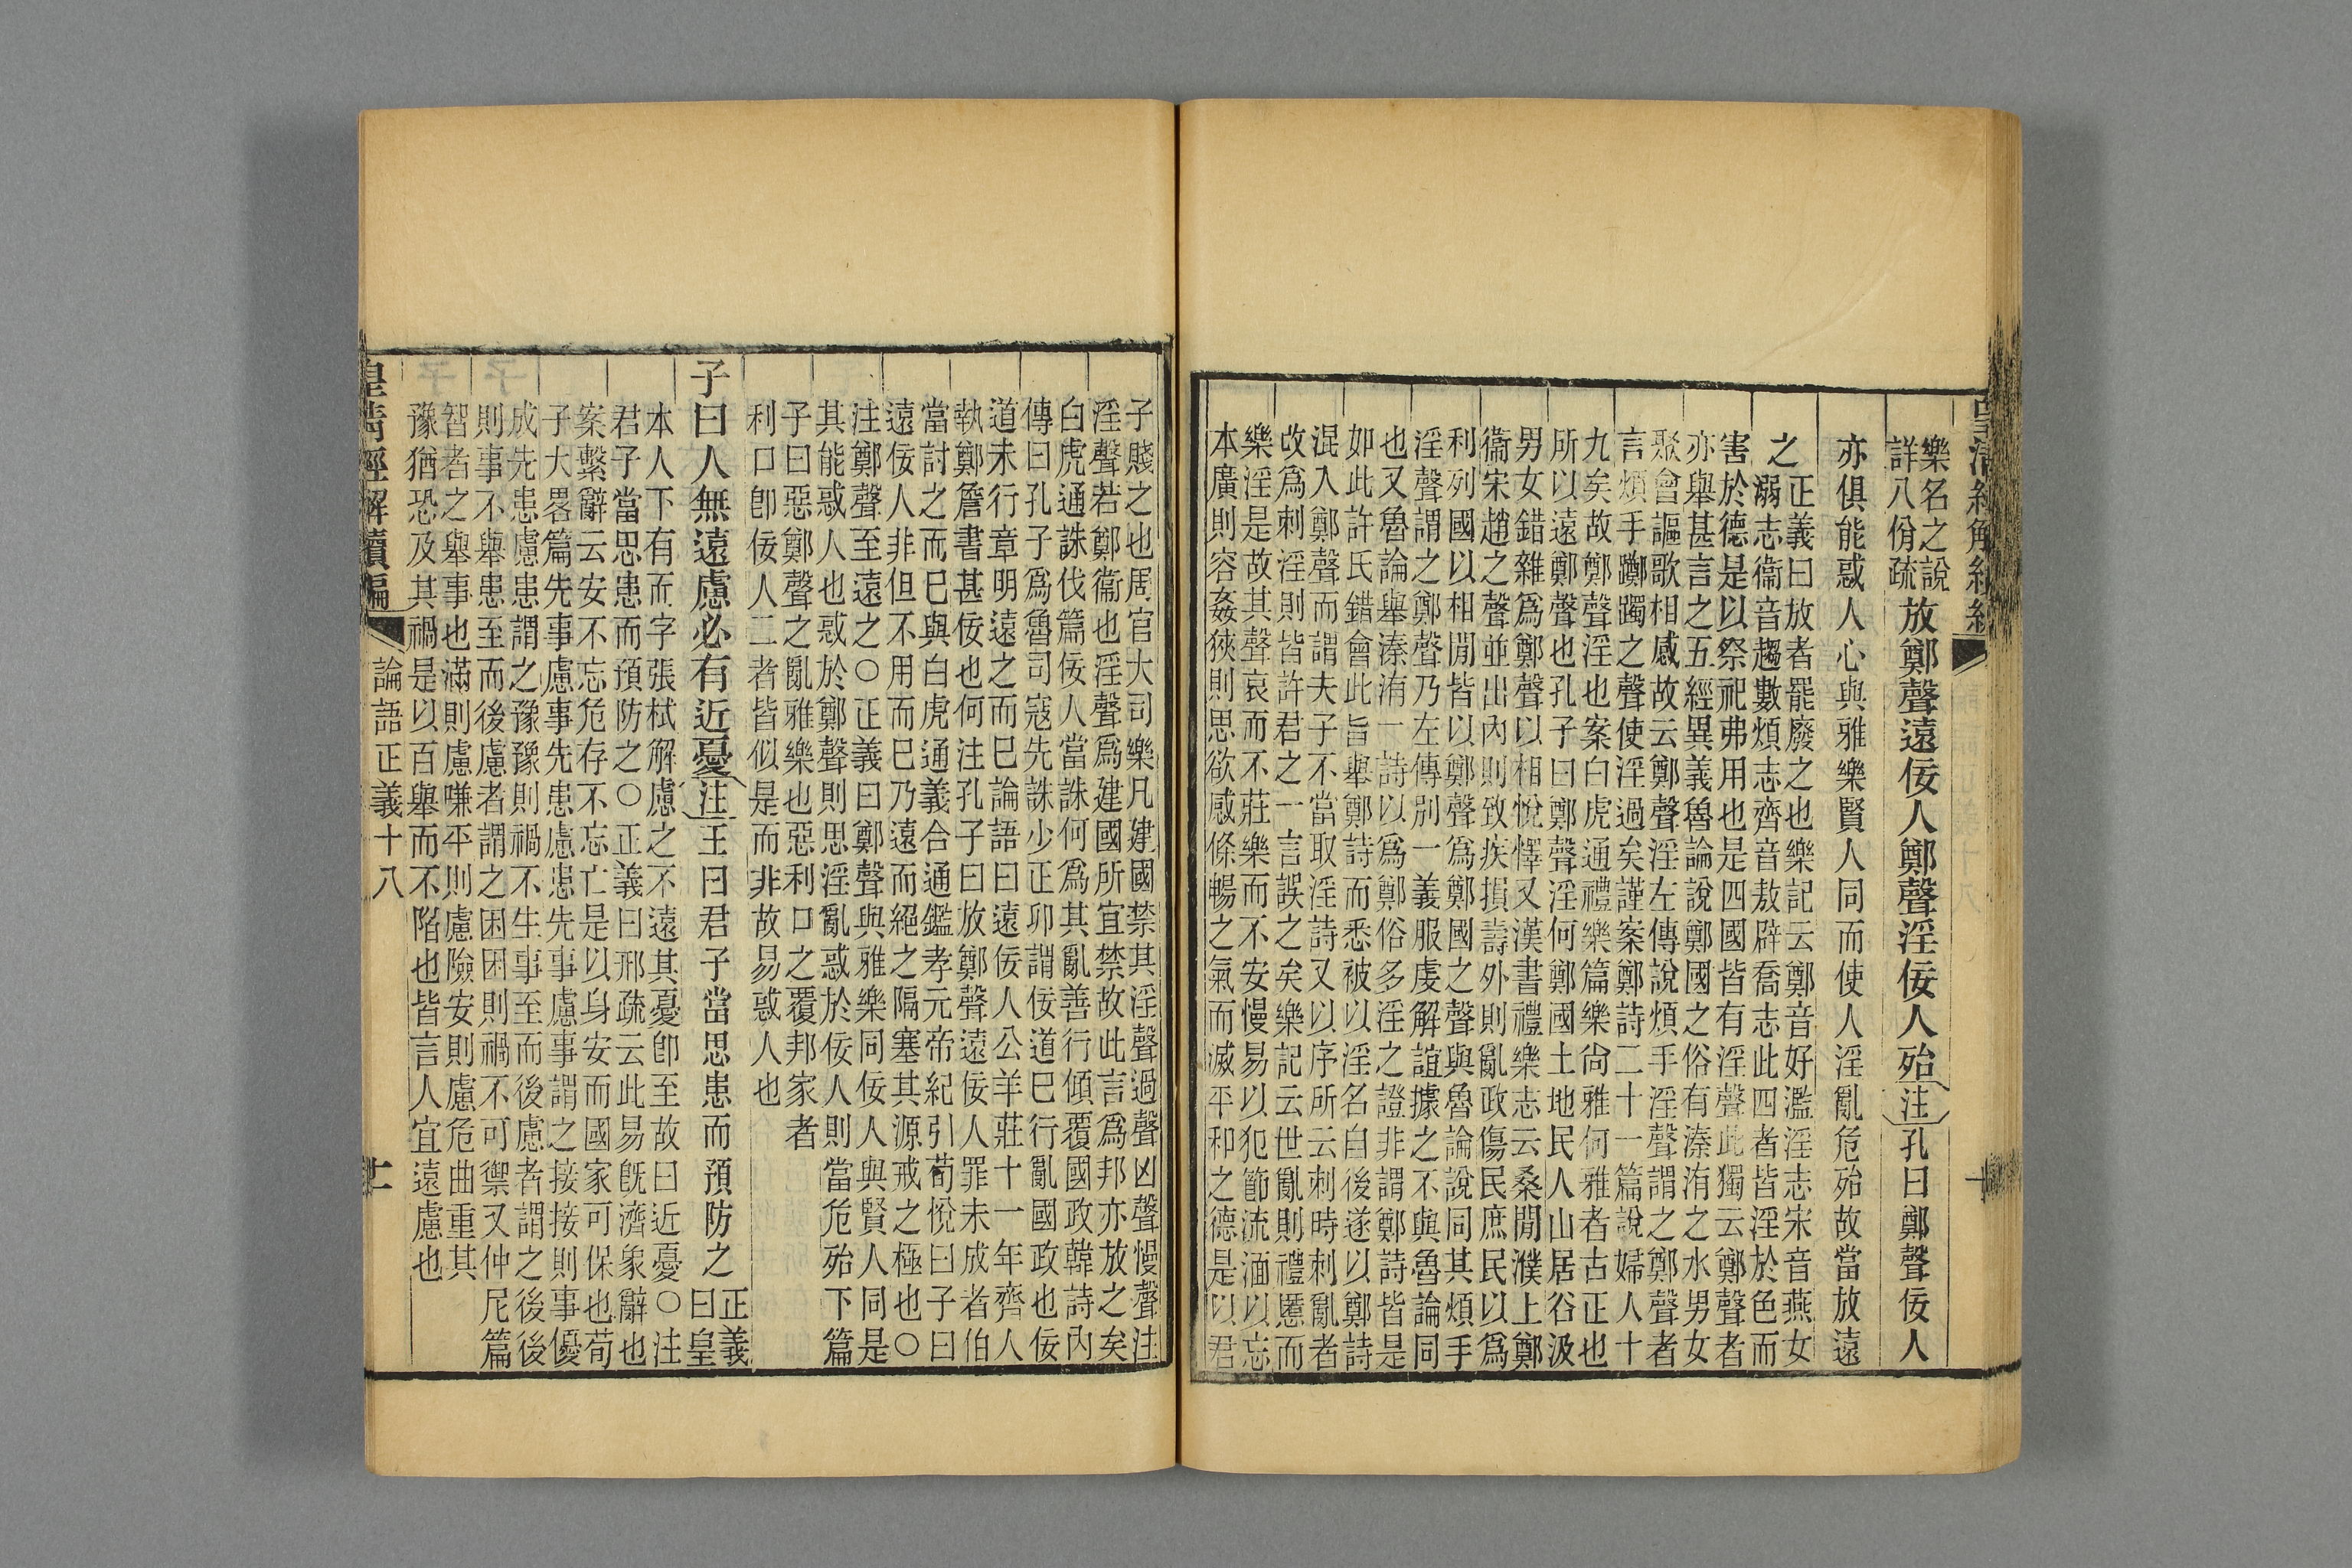 皇清經解續編
樂名之說
詳八佾疏
放鄭聲遠佞人鄭聲淫佞人殆注孔曰鄭聲佞人
亦俱能惑人心與雅樂賢人同而使人淫亂危殆故當放遠
之
正義曰放者罷廢之也樂記云鄭音好濫淫志宋音燕女
溺志衞音趨數煩志齊音敖辟喬志此四者皆淫於色而
害於德是以祭祀弗用也是四國皆有淫聲此獨云鄭聲者
亦舉甚言之五經異義魯論說鄭國之俗有溱洧之水男女
聚會謳歌相感故云鄭聲淫左傳說煩手淫聲謂之鄭聲者
言煩手躑躅之聲使淫過矣謹案鄭詩二十一篇說婦人十
九矣故鄭聲淫也案白虎通禮樂篇樂尙雅何雅者古正也
所以遠鄭聲也孔子曰鄭聲淫何鄭國土地民人山居谷汲
男女錯雜爲鄭聲以相悅懌又漢書禮樂志云桑閒濮上鄭
衞宋趙之聲並出內則致疾損壽外則亂政傷民庶民以爲
利列國以相閒皆以鄭聲爲鄭國之聲與魯論說同其煩手
淫聲謂之鄭聲乃左傳別一義服虔解誼據之不與魯論同
也又魯論舉溱洧一詩以爲鄭俗多淫之證非謂鄭詩皆是
如此許氏錯會此旨舉鄭詩而悉被以淫名自後遂以鄭詩
混入鄭聲而謂夫子不當取淫詩又以序所云刺時刺亂者
改爲刺淫則皆許君之一言誤之矣樂記云世亂則禮慝而
樂淫是故其聲哀而不莊樂而不安慢易以犯節流湎以忘
本廣則容姦狹則思欲感條暢之氣而滅平和之德是以君
子賤之也周官大司樂凡建國禁其淫聲過聲凶聲慢聲注
淫聲若鄭衞也淫聲爲建國所宜禁故此言爲邦亦放之矣
白虎通誅伐篇佞人當誅何爲其亂善行傾覆國政韓詩內
傳曰孔子爲魯司寇先誅少正卯謂佞道已行亂國政也佞
道未行章明遠之而已論語曰遠佞人公羊莊十一年齊人
執鄭詹書甚佞也何注孔子曰放鄭聲遠佞人罪未成者伯
當討之而已與白虎通義合通鑑孝元帝紀引荀悅曰子曰
遠佞人非但不用而已乃遠而絕之隔塞其源戒之極也〇
注鄭聲至遠之〇正義曰鄭聲與雅樂同佞人與賢人同是
其能惑人也惑於鄭聲則思淫亂惑於佞人則當危殆下篇
子曰惡鄭聲之亂雅樂也惡利口之覆邦家者
利口卽佞人二者皆似是而非故易惑人也
子曰人無遠慮必有近憂注王曰君子當思患而預防之
正義
曰皇
本人下有而字張栻解慮之不遠其憂卽至故曰近憂〇注
君子當思患而預防之〇正義曰邢疏云此易旣濟象辭也
案繫辭云安不忘危存不忘亡是以身安而國家可保也荀
子大畧篇先事慮事先患慮患先事慮事謂之接接則事優
成先患慮患謂之豫豫則禍不生事至而後慮者謂之後後
則事不舉患至而後慮者謂之困困則禍不可禦又仲尼篇
智者之舉事也滿則慮嗛平則慮險安則慮危曲重其
豫猶恐及其禍是以百舉而不陷也皆言人宜遠慮也
皇清經解續編
論語正義十八